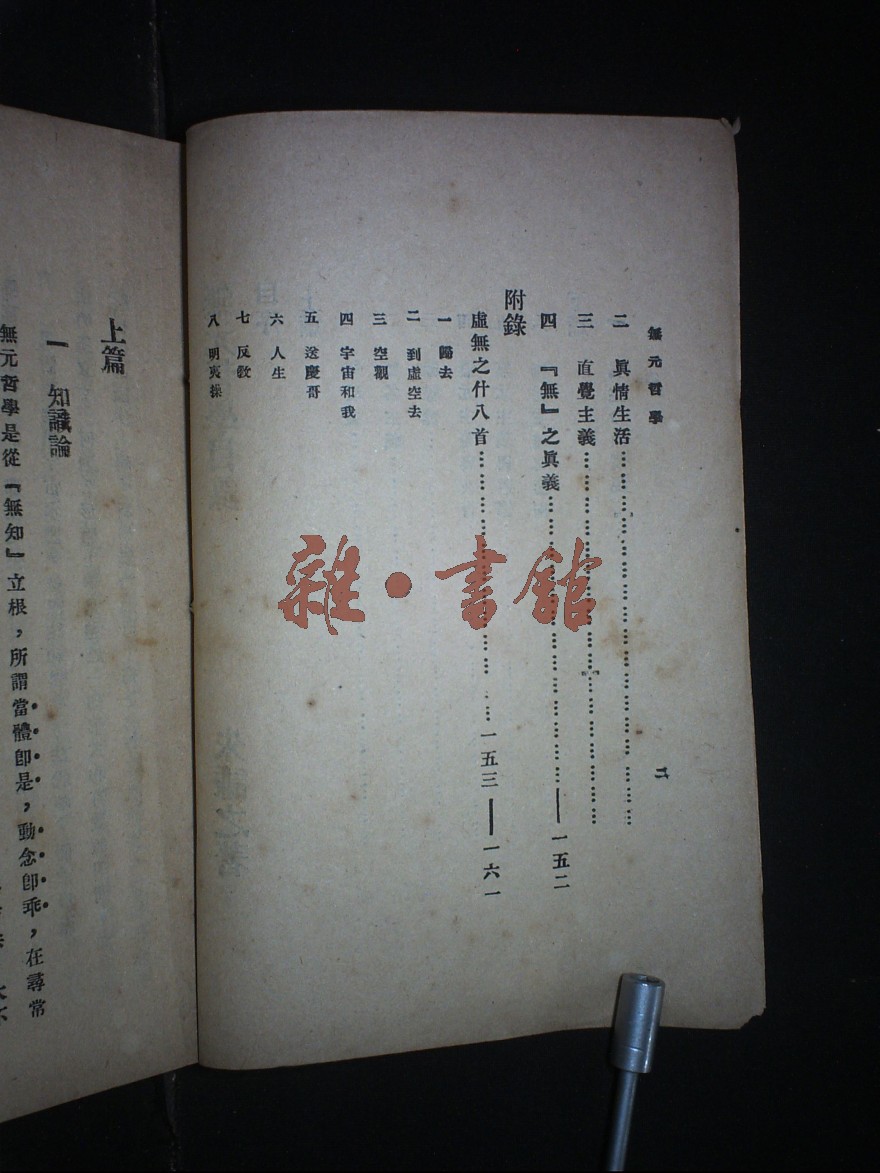 無元哲學
二
二 眞情生活……………………………………
三 直覺主義……………………………………
四 『無』之眞義……………………………——一五二
附錄
虛無之什八首……………………………一五三——一六一
一 歸去
二 到虛空去
三 空觀
四 宇宙和我
五 送慶哥
六 人生
七 反敎
八 明夷操
上篇
一 知識論
無元哲學是從『無知』立根，所謂當體卽是，動念卽乖，在尋常
雜·書館